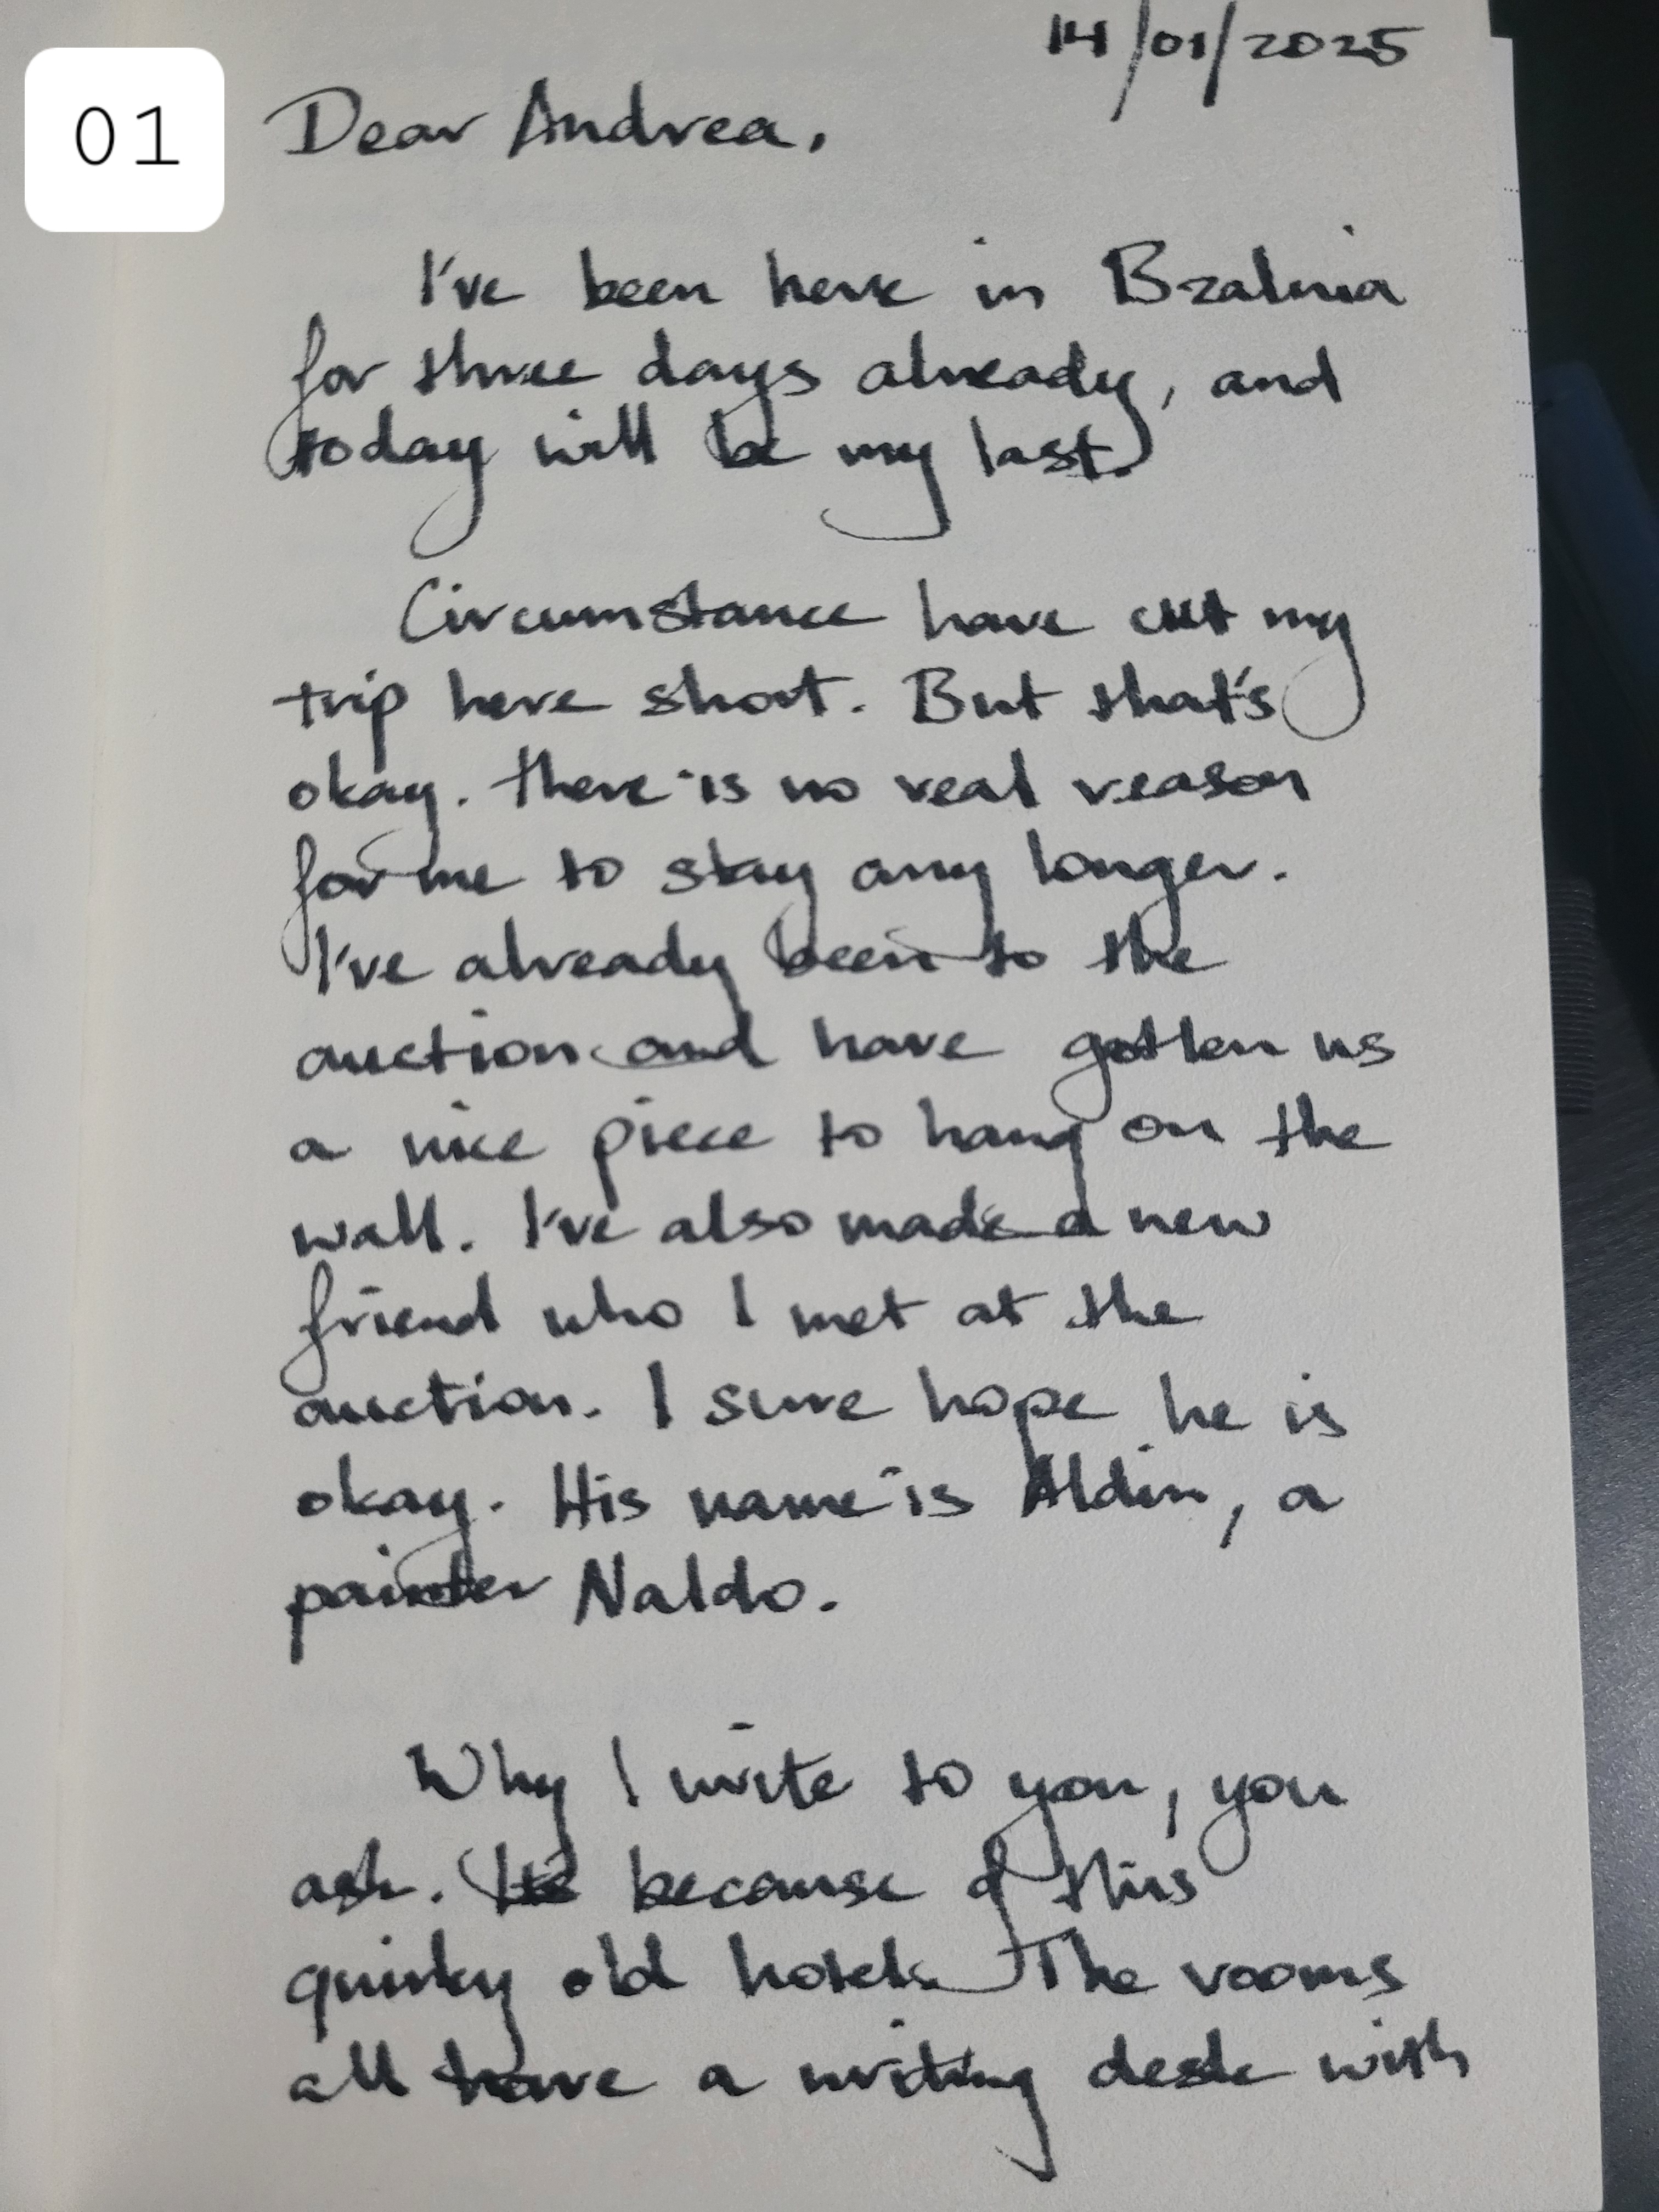 01
14/01/2025
Dear Andrea,
I've been here in Bzalnia
for three days already, and
today will be my last.
Circumstance have cut my
trip here short. But that's
okay. there is no real reason
for me to stay any longer.
I've already been to the
auction and have gotten us
a nice piece to hang on the
wall. I've also made a new
friend who I met at the
auction. I sure hope he is
okay. His name is Aldin, a
painter Naldo.
Why I write to you, you
ask. because of this
quirky old hotel. The rooms
all have a writing desk with